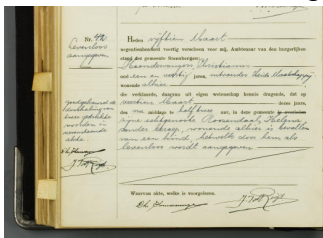 Nr. 42
Levenloos
aangegeven
Heden vijftien Maart
negentienhonderd veertig verscheen voor mij, Ambtenaar van den burgerlijken
stand der gemeente
Christiaan
oud een en veertig jaren,
wonende alhier
die verklaarde, daarvan uit eigen wetenschap kennis dragende, dat op
veertien Maart dezes jaars,
des na middags te half twee uur, in deze gemeente
zijne echtgenoote Roosendaal, Helena,
zonder beroep, wonende alhier is bevallen
van een kind, hetwelk door hem als
levenloos wordt aangegeven
Goedgekeurd de
doorhaling van
twee gedrukte
woorden in
nevenstaande
akte
Waarvan akte, welke is voorgelezen.